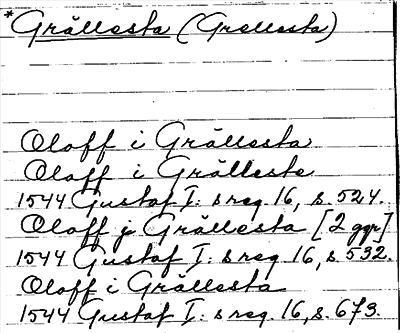 *Grällesta (Grellesta)
Oloff i Grällesta
Oloff i Grälleste
1544 Gustaf I: s reg. 16, s. 524.
Oloff j Grällesta [2 ggr]
1544 Gustaf I: s reg. 16, s. 532.
Oloff i Grällesta
1544 Gustaf I: s reg. 16, s. 673.